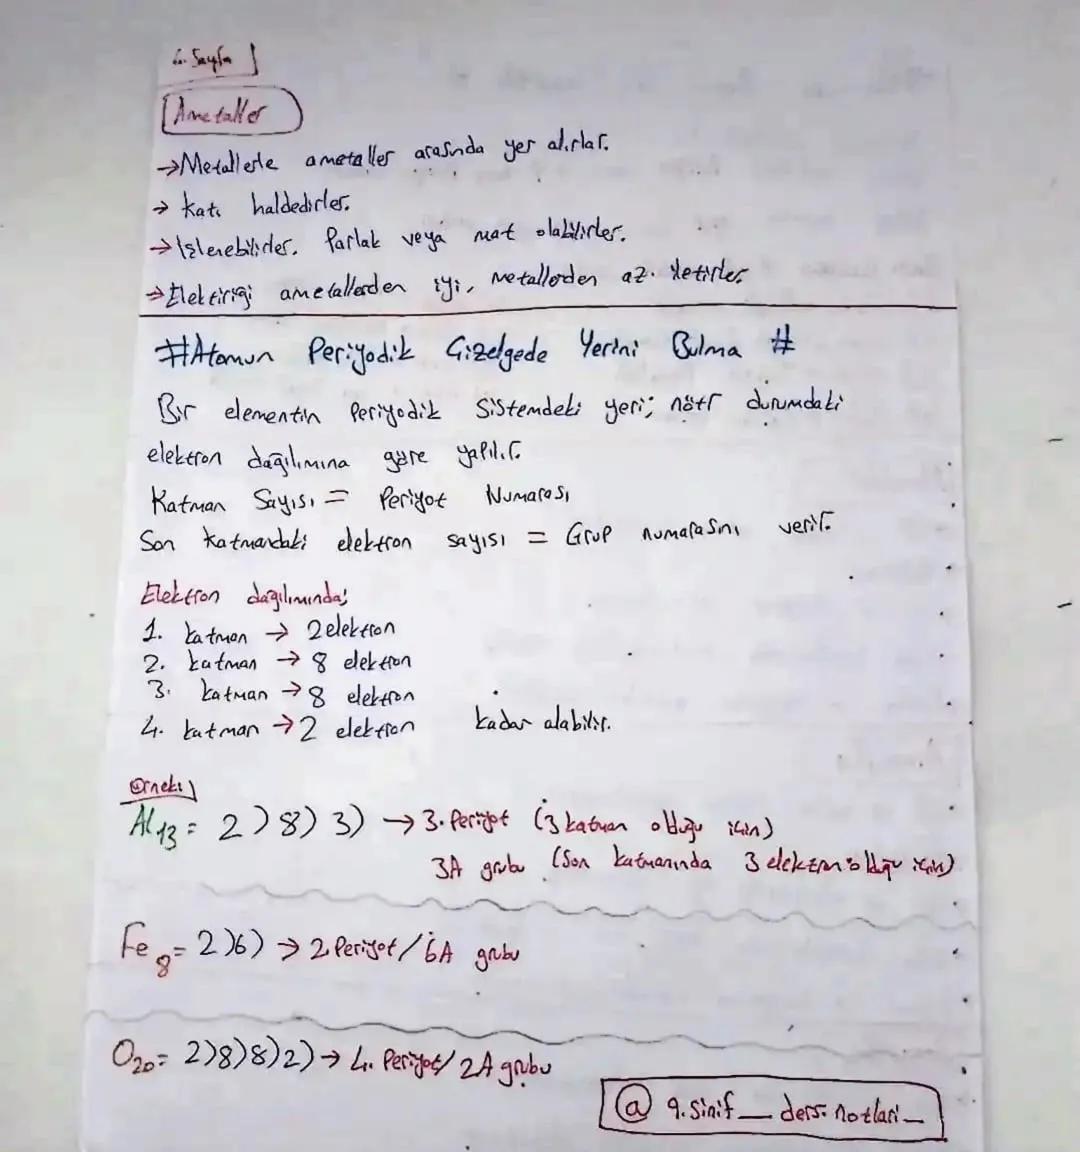 6. Sayfa
Ametaller
→Metallerle ametaller arasında yer alırlar.
→ Katı haldedirler.
→İşlenebilirler. Parlak veya mat olabilirler.
→Elektirigi ametallerden iyi, metallerden az iletirler.
#Atomun Periyodik Çizelgede Yerini Bulma #
Bir elementin Periyodik Sistemdeki yeri; nötr durumdaki
elektron dağılımına göre yapılır.
Katman Sayısı = Periyot Numarası
Son Katmandaki elektron sayısı = Grup numarasını verir.
Elektron dağılımında;
1. katman → 2 elektron
2. katman → 8 elektron
3. katman → 8 elektron
4. katman → 2 elektron kadar alabilir.
Örnek:
Al13 = 2)8)3) → 3. Periyot (3 katman olduğu için)
3A grubu (Son katmanında 3 elektron olduğu için)
Fe8= 2)6) → 2.Periyot/ 6A grubu
O20= 2)8)8)2) → 4. Periyot/ 2A grubu
@ 9.sinif_ders.notlari_